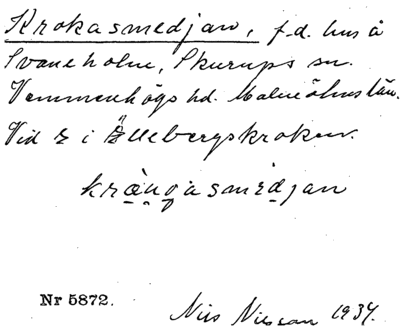 Krokasmedjan, f.d. hus å
Svaneholm, Skurups sn.
Vemmenhögs hd. Malmöhus län.
Vid r i Ellebergskroken.
kråugasmedjan
Nr 5872.
Nils Nilsson 1934.